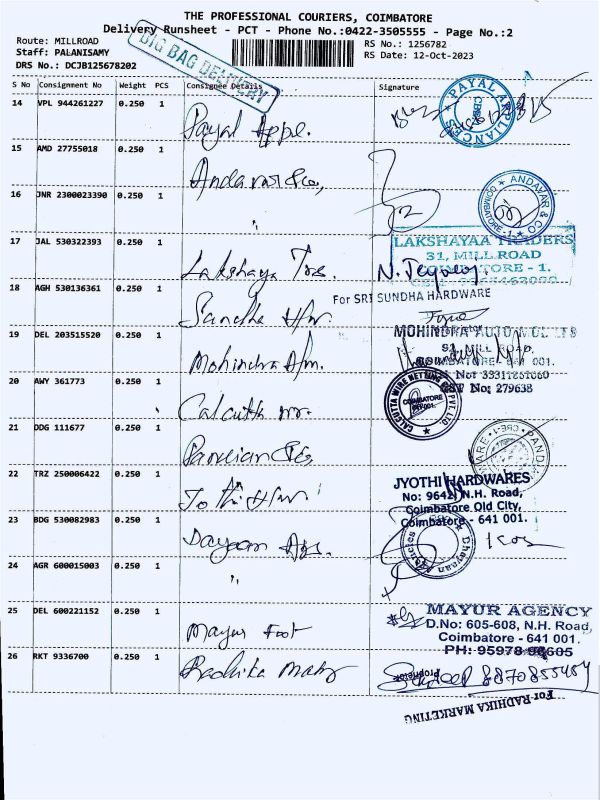 THE PROFESSIONAL COURIERS, COIMBATORE
Delivery Runsheet - PCT - Phone No.:0422-3505555 - Page No.:2
Route: MILLROAD
RS No.: 1256782
Staff: PALANISAMY
RS Date: 12-Oct-2023
DRS No.: DCJB125678202
BIG BAG DELIVERY
S No Consignment No Weight PCS Consignee Details Signature
14 VPL 944261227 0.250 1
Payal Appe.
PAYAL APPLIANCES
CBE
15 AMD 27755018 0.250 1
Andavar & Co,
16 JNR 2300023390 0.250 1
"
ANDAVAR & CO
COIMBATORE - 1.
17 JAL 530322393 0.250 1
Lakshaya Trs.
LAKSHAYAA TRADERS
31, MILL ROAD
COIMBATORE - 1.
18 AGH 530136361 0.250 1
Sandha H/w.
For SRI SUNDHA HARDWARE
19 DEL 203515520 0.250 1
Mohindra A/m.
MOHINDRA AUTO
MILL ROAD
COIMBATORE - 641 001.
GST No: 279638
20 AWY 361773 0.250 1
Calcutta
CALCUTTA WIRE NETTING CO PVT. LTD.
COIMBATORE
641 001.
21 DDG 111677 0.250 1
22 TRZ 250006422 0.250 1
Jothi H/w
JYOTHI HARDWARES
No: 9642, N.H. Road,
Coimbatore Old City,
Coimbatore - 641 001.
23 BDG 530082983 0.250 1
24 AGR 600015003 0.250 1
"
25 DEL 600221152 0.250 1
Mayur Foot
MAYUR AGENCY
D.No: 605-608, N.H. Road,
Coimbatore - 641 001.
26 RKT 9336700 0.250 1
Radhika
Proprietor
For RADHIKA MARKETING